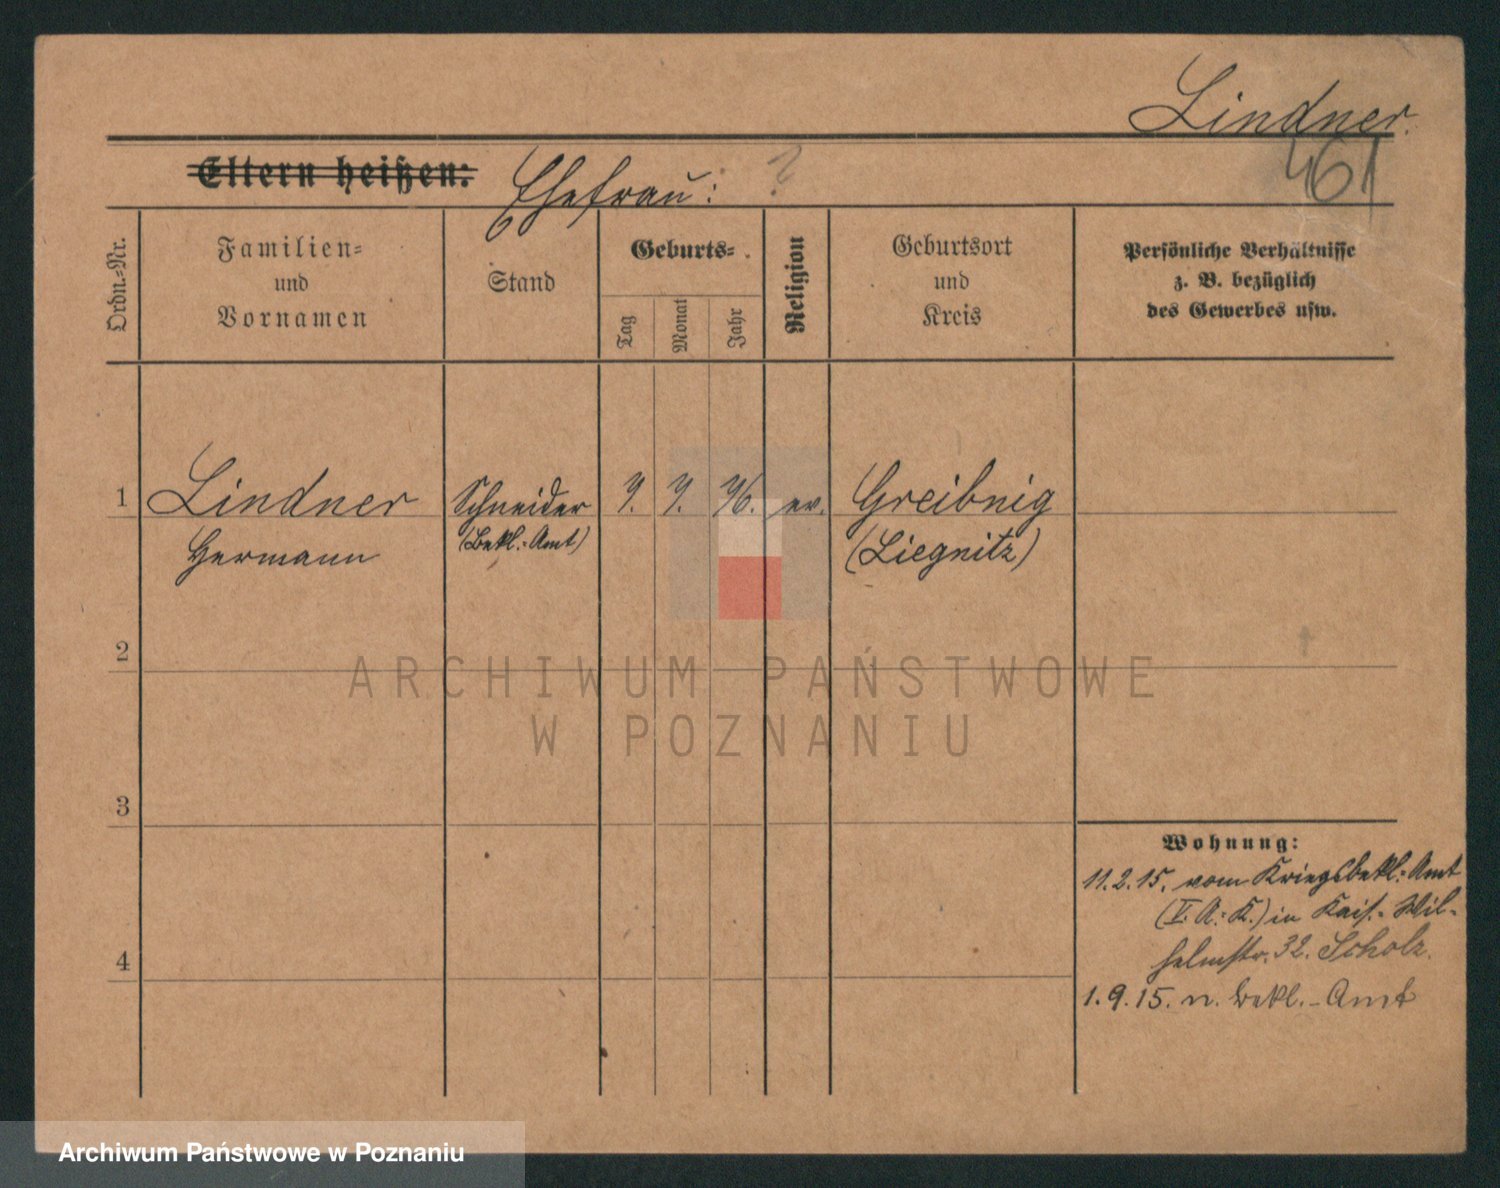 Lindner.
461
Eltern heißen: Ehefrau: ?
Ordn.-Nr.
Familien-
und
Vornamen
Stand
Geburts-
Tag
Monat
Jahr
Religion
Geburtsort
und
Kreis
Persönliche Verhältnisse
z. B. bezüglich
des Gewerbes usw.
1 Lindner Schneider ev. Greibnig
Hermann (Bekl.-Amt) (Liegnitz)
2
3
4
Wohnung:
11.2.15. vom Kriegsbekl.-Amt
(V. A.-K.) in Kais.-Wil-
helmstr. 32. Scholz.
1.9.15. n. Bekl.-Amt
ARCHIWUM PAŃSTWOWE
W POZNANIU
Archiwum Państwowe w Poznaniu